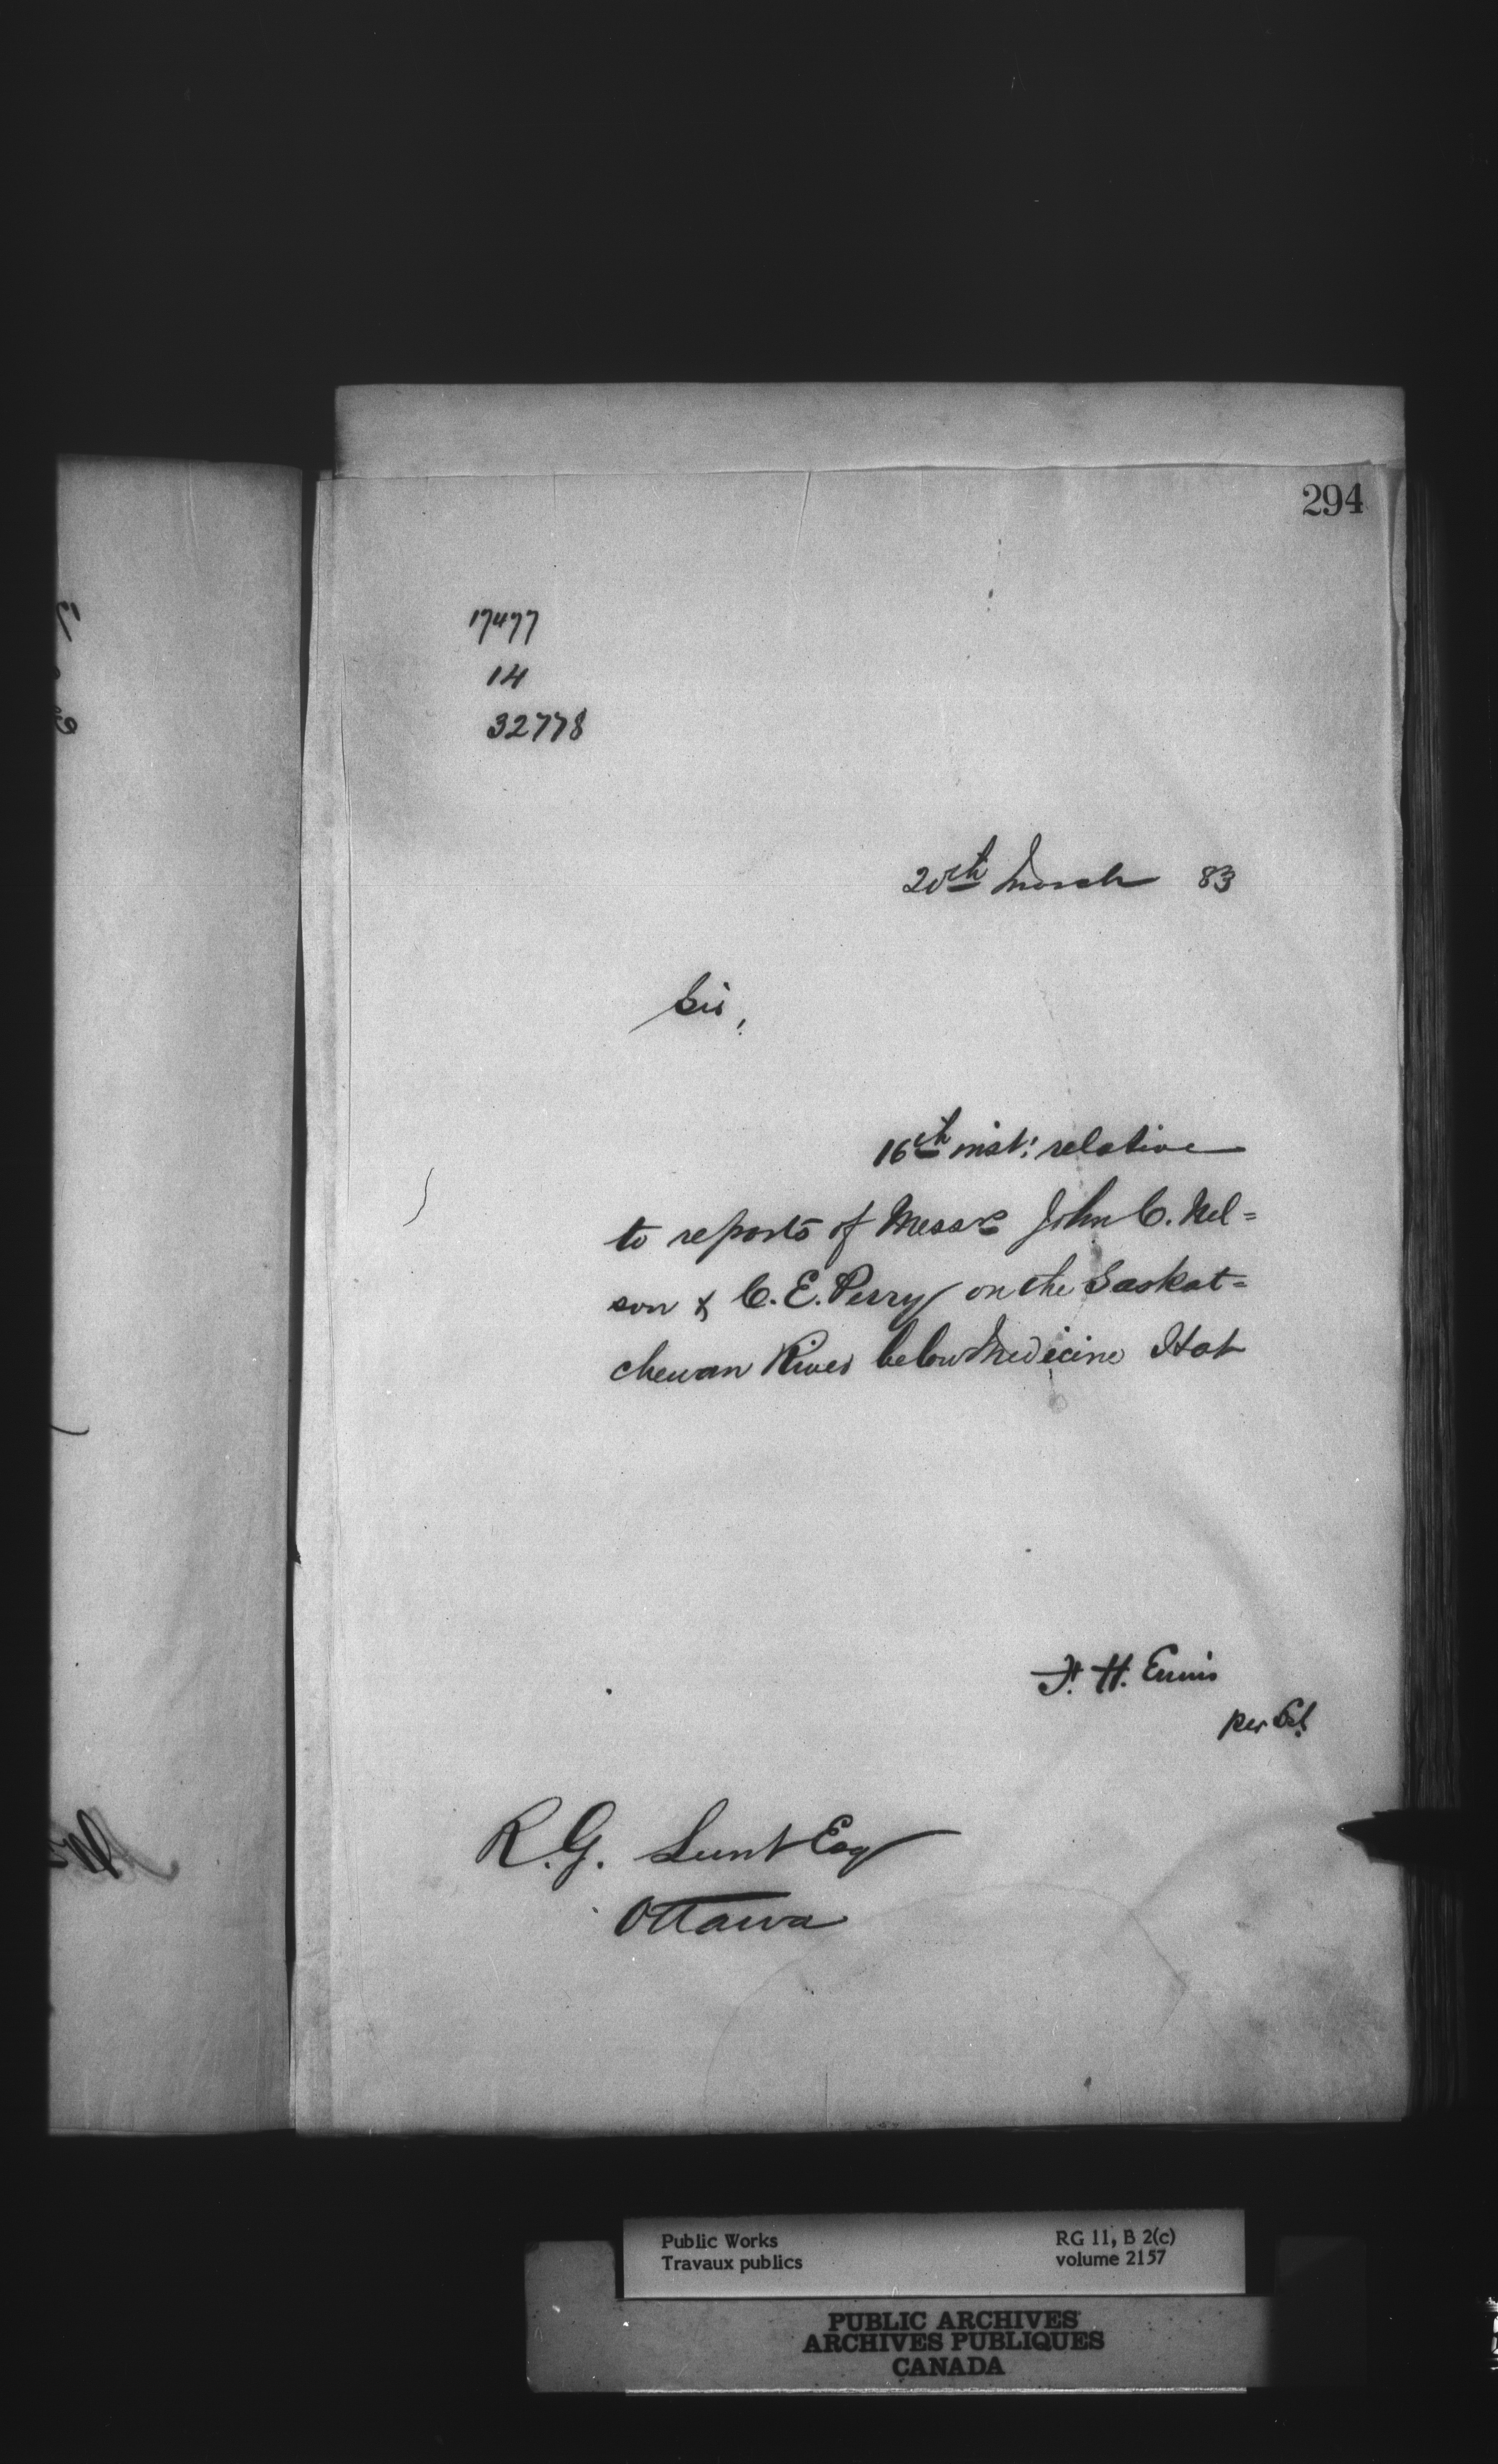 294
17477
14
32778
20th March 83
Sir,
16th inst: relative
to reports of Messrs John C. Nel=
son & C. E. Perry on the Saskat=
chewan River below Medicine Hat
F. H. Ennis
per
R. G. Lunt Esq
Ottawa
Public Works
Travaux publics
RG 11, B 2(c)
volume 2157
PUBLIC ARCHIVES
ARCHIVES PUBLIQUES
CANADA